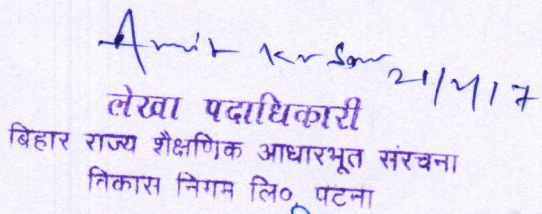 Amit Kr 21/4/17
लेखा पदाधिकारी
बिहार राज्य शैक्षणिक आधारभूत संरचना
विकास निगम लि०, पटना